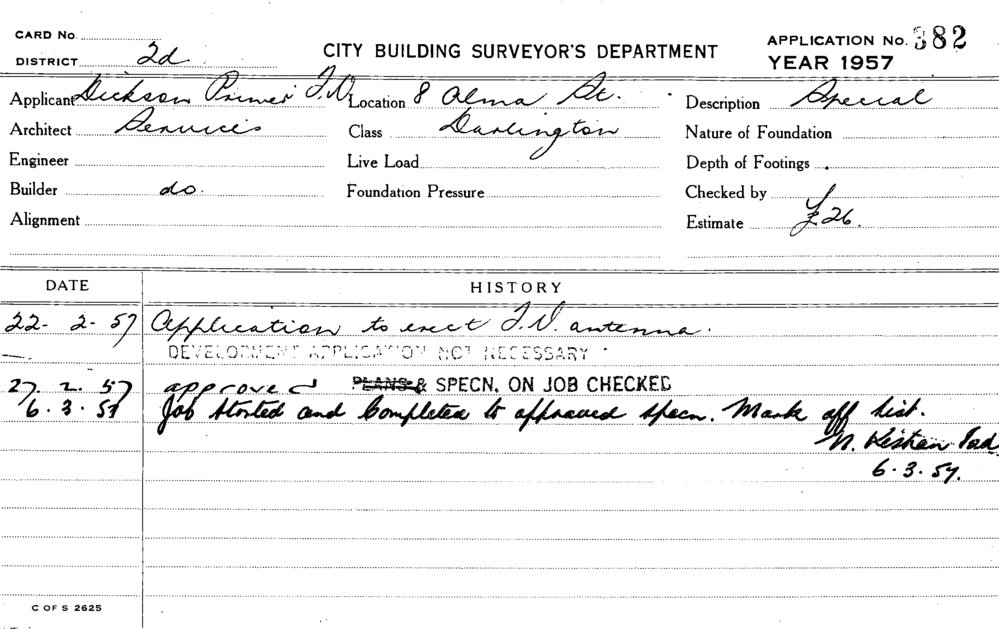 CARD No.
CITY BUILDING SURVEYOR'S DEPARTMENT
APPLICATION No. 382
DISTRICT 2d
YEAR 1957
Applicant Dickson Primer T.V. Location 8 Alma St. Description Special
Architect Services Class Darlington Nature of Foundation
Engineer Live Load Depth of Footings
Builder do. Foundation Pressure Checked by
Alignment Estimate £26.
DATE HISTORY
22- 2- 57 Application to erect T.V. antenna.
DEVELOPMENT APPLICATION NOT NECESSARY
27. 2. 57 approved PLANS & SPECN. ON JOB CHECKED
6. 3. 57 Job started and Completed to approved specn. Mark off list.
N.
6. 3. 57.
C OF S 2625